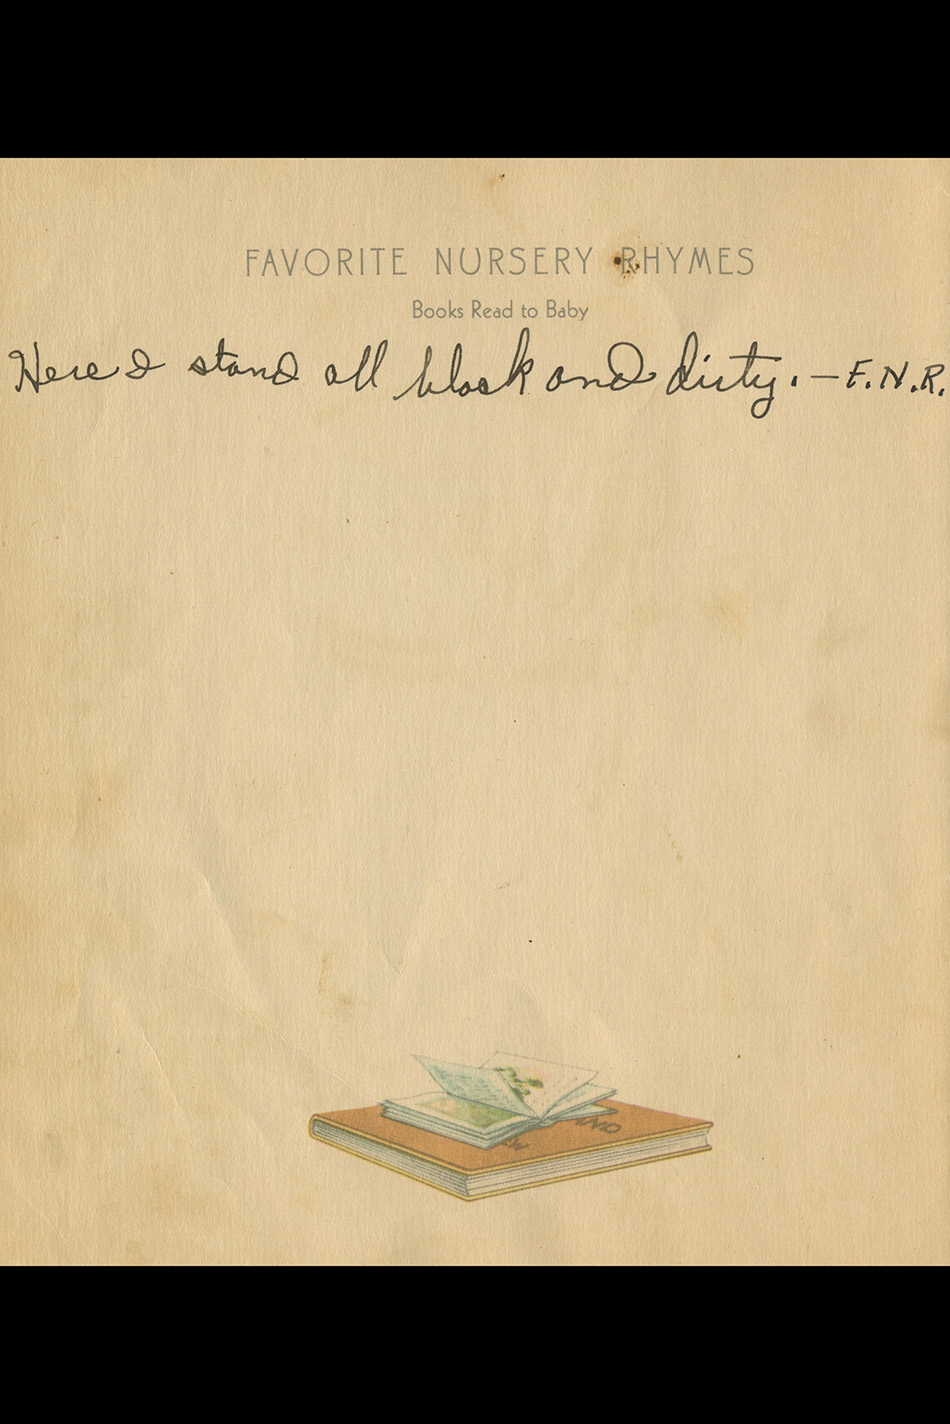 FAVORITE NURSERY RHYMES
Books Read to Baby
Here I stand all black and dirty. — E.N.R.